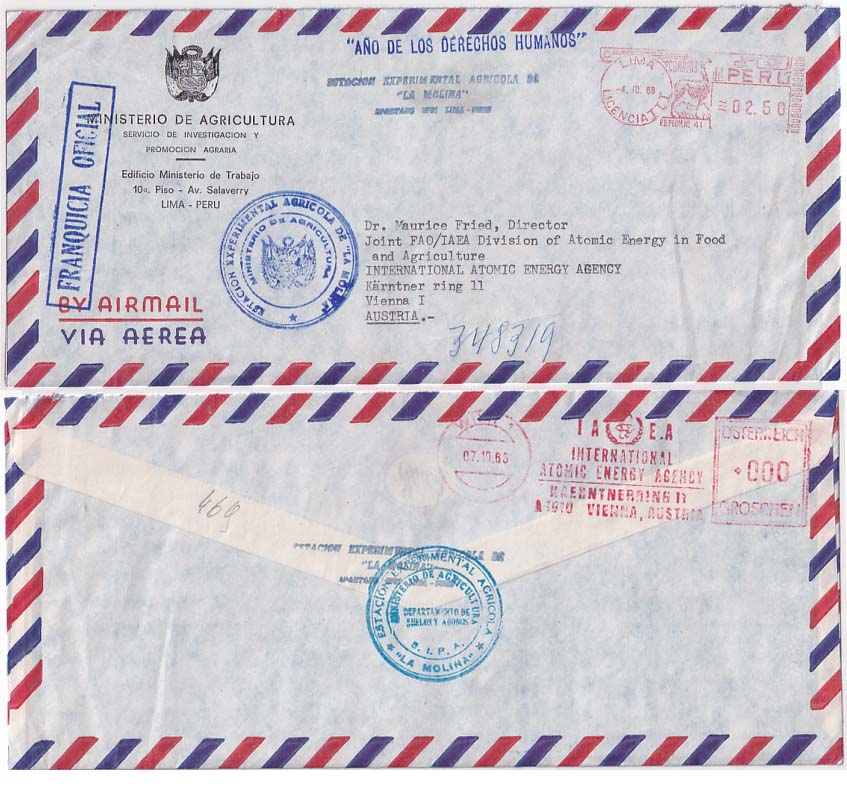 "AÑO DE LOS DERECHOS HUMANOS"
ESTACION EXPERIMENTAL AGRICOLA DE
"LA MOLINA"
APARTADO LIMA-PERU
LIMA
-4.10.68
LICENCIA
CORREOS
PERU
02.50
MINISTERIO DE AGRICULTURA
SERVICIO DE INVESTIGACION Y
PROMOCION AGRARIA
Edificio Ministerio de Trabajo
10o. Piso - Av. Salaverry
LIMA - PERU
FRANQUICIA OFICIAL
ESTACION EXPERIMENTAL AGRICOLA DE "LA MOLINA"
MINISTERIO DE AGRICULTURA
BY AIRMAIL
VIA AEREA
Dr. Maurice Fried, Director
Joint FAO/IAEA Division of Atomic Energy in Food
and Agriculture
INTERNATIONAL ATOMIC ENERGY AGENCY
Kärntner ring 11
Vienna I
AUSTRIA.-
348319
WIEN
07.10.68
IAEA
INTERNATIONAL
ATOMIC ENERGY AGENCY
KAERNTNERRING 11
A1010 VIENNA, AUSTRIA
ÖSTERREICH
000
GROSCHEN
469
ESTACION EXPERIMENTAL AGRICOLA DE
"LA MOLINA"
ESTACION EXPERIMENTAL AGRICOLA
MINISTERIO DE AGRICULTURA
DEPARTAMENTO DE
SUELOS Y ABONOS
S. I. P. A.
"LA MOLINA"